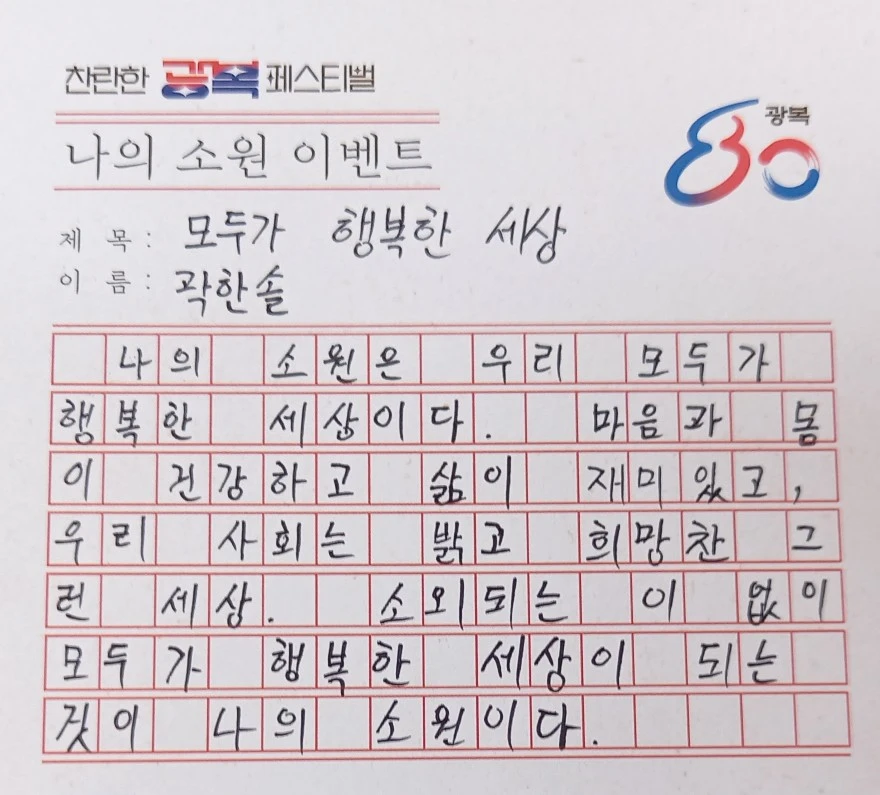 찬란한 광복 페스티벌
광복
80
나의 소원 이벤트
제 목 : 모두가 행복한 세상
이 름 : 곽한솔
나의 소원은 우리 모두가
행복한 세상이다. 마음과 몸
이 건강하고 삶이 재미있고,
우리 사회는 밝고 희망찬 그
런 세상. 소외되는 이 없이
모두가 행복한 세상이 되는
것이 나의 소원이다.